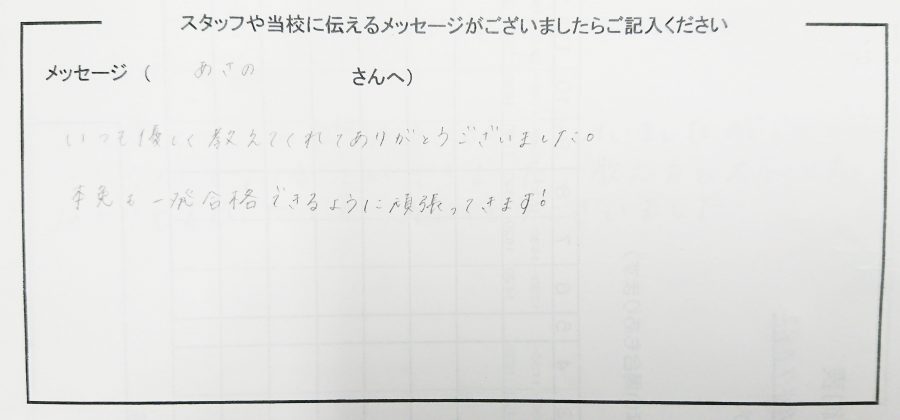 スタッフや当校に伝えるメッセージがございましたらご記入ください
メッセージ ( あさの さんへ)
いつも優しく教えてくれてありがとうございました。
本免も一発合格できるように頑張ってきます!